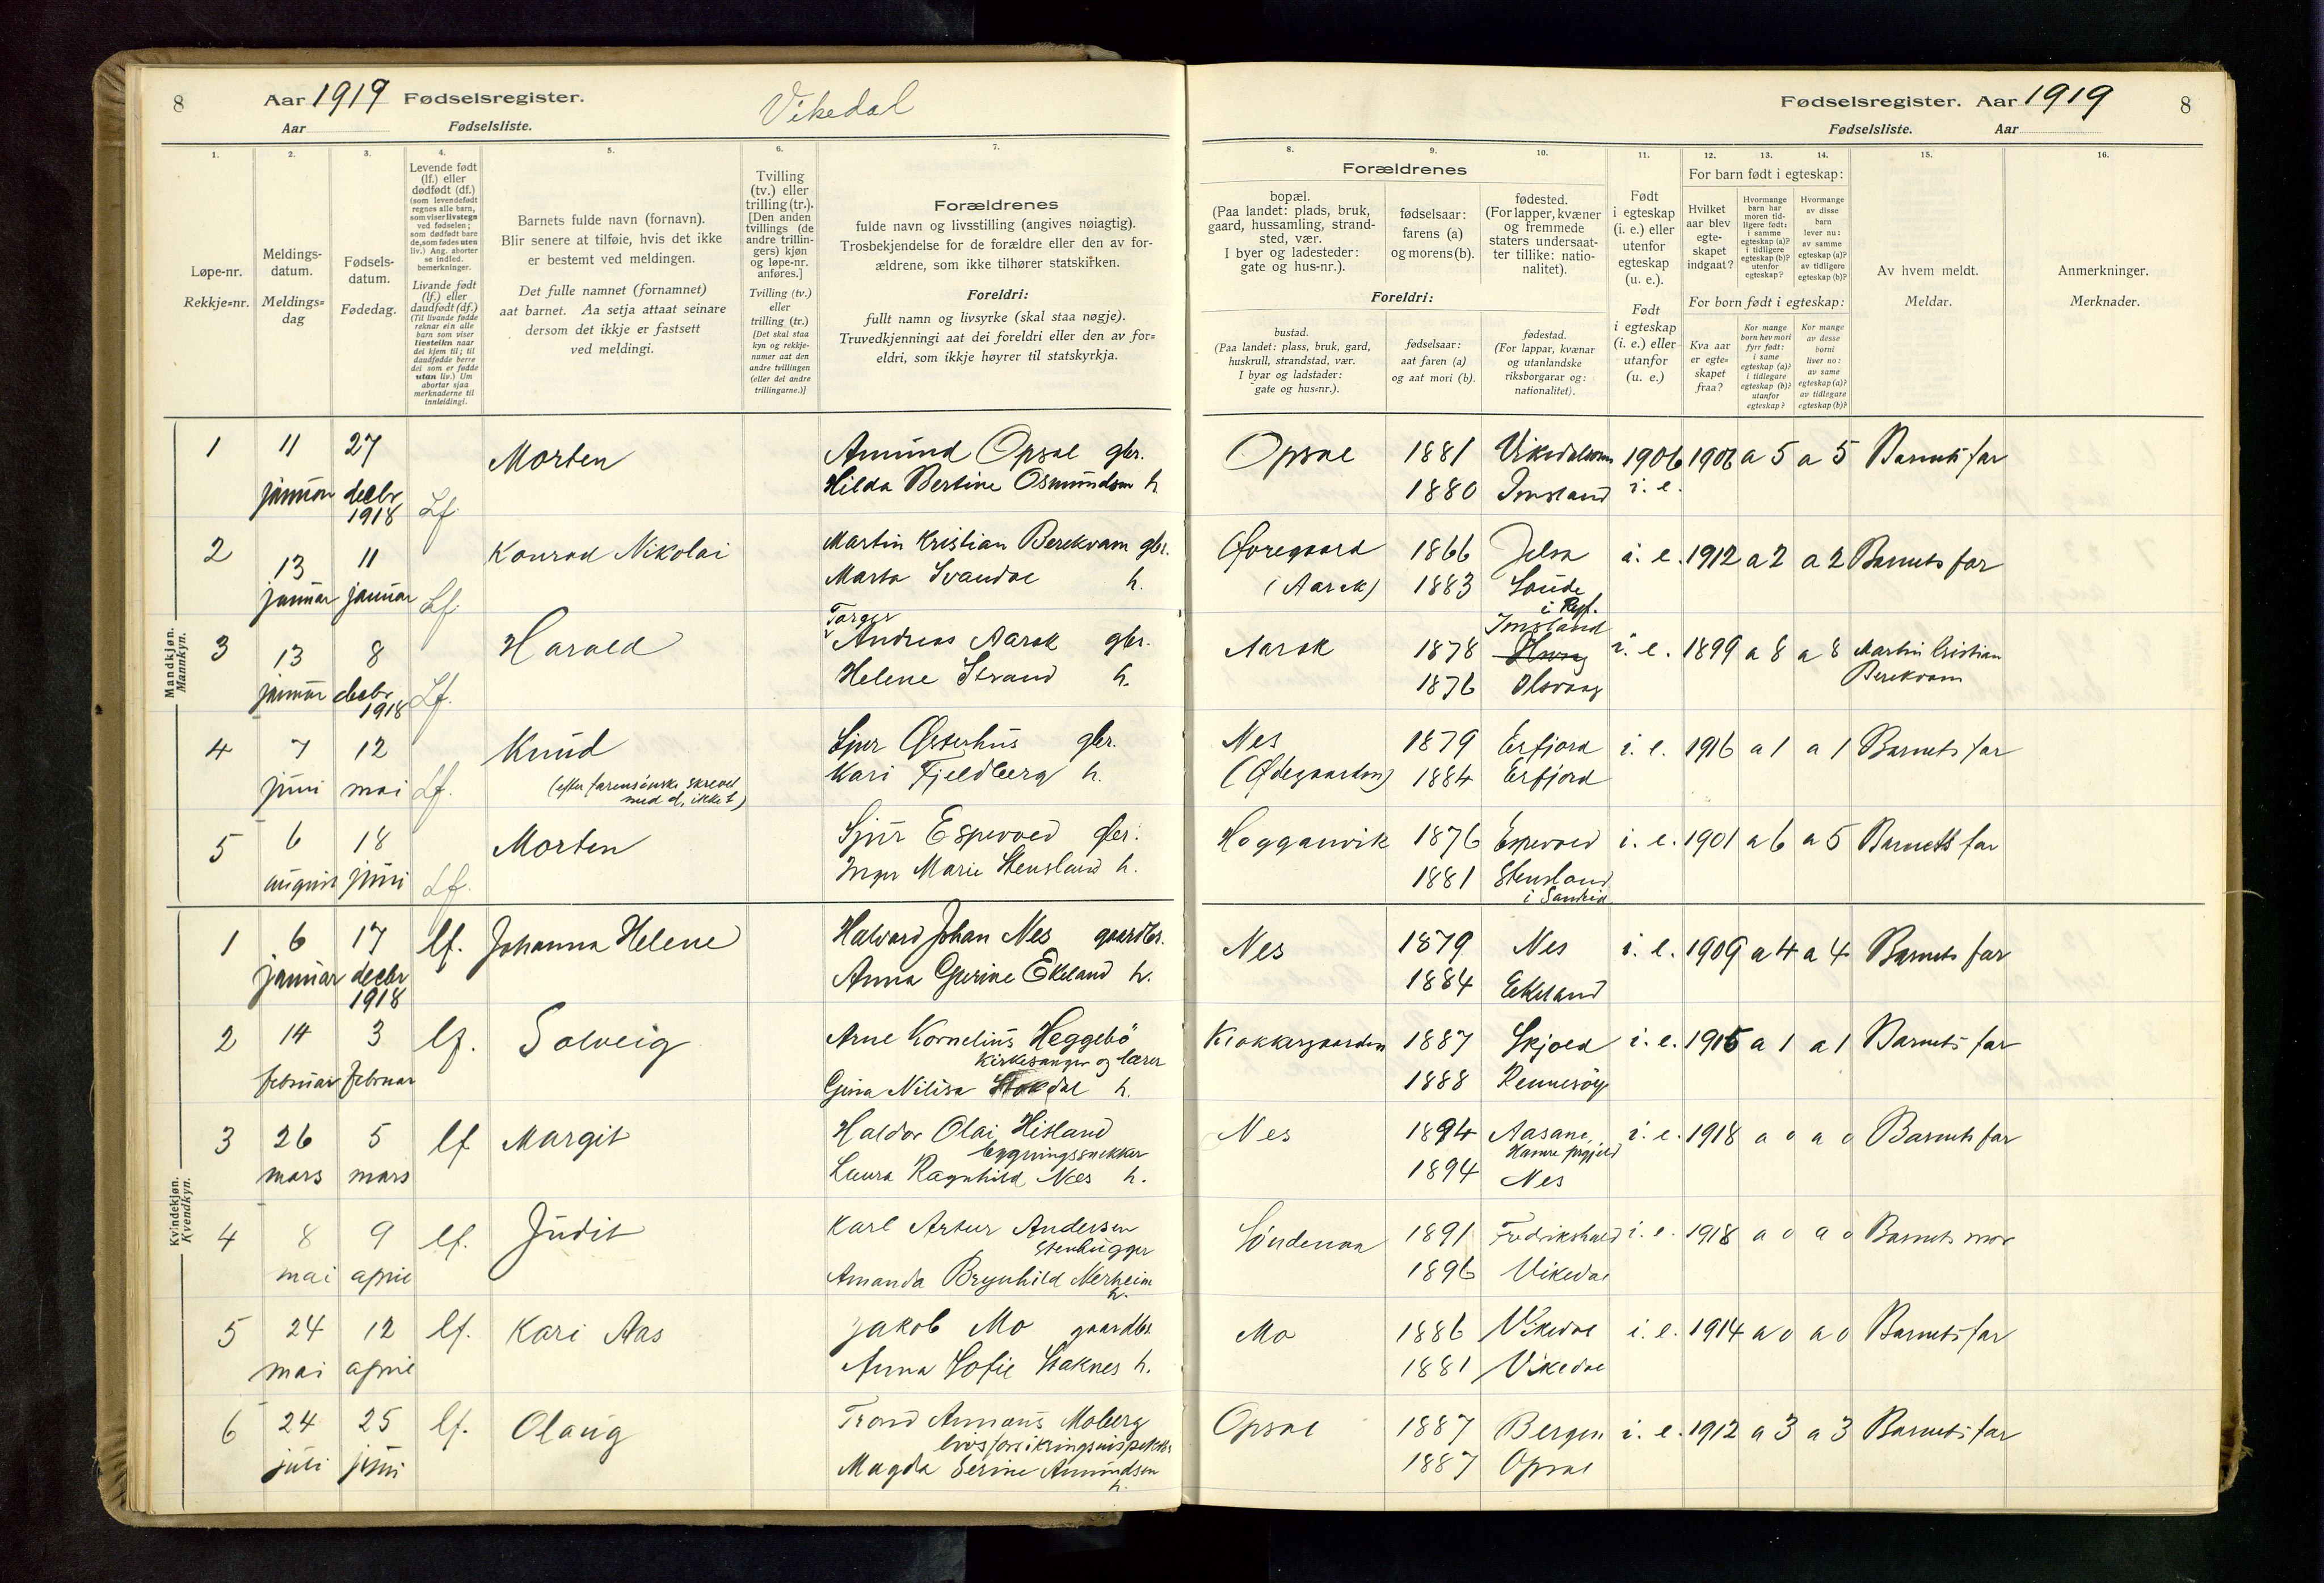 8 Aar 1919 Fødselsregister. Vikedal
Aar Fødselsliste.
Fødselsregister. Aar 1919 8
Fødselsliste. Aar
1. 2. 3. 4. 5. 6. 7. 8. 9. 10. 11. 12. 13. 14. 15. 16.
Løpe-nr.
Rekkje=nr.
Meldings-
datum.
Meldings=
dag
Fødsels-
datum.
Fødedag.
Levende født
(lf.) eller
dødfødt (df.)
(som levendefødt
regnes alle barn,
som viser livstegn
ved fødselen;
som dødfødt bare
de, som fødes uten
liv.) Ang. aborter
se indled.
bemerkninger.
Livande født
(lf.) eller
daudfødt (df.)
(Til livande fødde
reknar ein alle
born som viser
livsteikn naar
dei kjem til; til
daudfødde berre
dei som er fødde
utan liv.) Um
abortar sjaa
merknaderne til
innleidingi.
Barnets fulde navn (fornavn).
Blir senere at tilføie, hvis det ikke
er bestemt ved meldingen.
Det fulle namnet (fornamnet)
aat barnet. Aa setja attaat seinare
dersom det ikkje er fastsett
ved meldingi.
Tvilling
(tv.) eller
trilling (tr.).
[Den anden
tvillings (de
andre trillin-
gers) kjøn
og løpe-nr.
anføres.]
Tvilling (tv.)
eller
trilling (tr.)
[Det skal staa
kyn og rekkje-
numer aat den
andre tvillingen
(eller dei andre
trillingarne.)]
Forældrenes
fulde navn og livsstilling (angives nøiagtig).
Trosbekjendelse for de forældre eller den av for-
ældrene, som ikke tilhører statskirken.
Foreldri:
fullt namn og livsyrke (skal staa nøgje).
Truvedkjenningi aat dei foreldri eller den av for=
eldri, som ikkje høyrer til statskyrkja.
Forældrenes
bopæl.
(Paa landet: plads, bruk,
gaard, hussamling, strand-
sted, vær.
I byer og ladesteder:
gate og hus-nr.).
fødselsaar:
farens (a)
og morens (b).
fødested.
(For lapper, kvæner
og fremmede
staters undersaat-
ter tillike: natio-
nalitet).
Foreldri:
bustad.
(Paa landet: plass, bruk, gard,
huskrull, strandstad, vær.
I byar og ladstader:
gate og hus=nr.).
fødselsaar:
aat faren (a)
og aat mori (b).
fødestad.
(For lappar, kvænar
og utanlandske
riksborgarar og:
nationalitet).
Født
i egteskap
(i. e.) eller
utenfor
egteskap
(u. e.).
Født
i egteskap
(i. e.) eller
utanfor
(u. e.)
For barn født i egteskap:
Hvilket
aar blev
egte-
skapet
indgaat?
Hvormange
barn har
moren tid-
ligere født:
i samme
egteskap (a)?
i tidligere
egteskap (b)?
utenfor
egteskap?
Hvormange
av disse
barn
lever nu:
av samme
egteskap (a)?
av tidligere
egteskap (b)?
For born født i egteskap:
Kva aar
er egte=
skapet
fraa?
Kor mange
born hev mori
fyrr født:
i same
egteskap (a)?
i tidlegare
egteskap (b)?
utanfor
egteskap?
Kor mange
av desse
borni
liver no:
av same
egteskap (a)?
av tidlegare
egteskap (b)?
Av hvem meldt.
Meldar.
Anmerkninger.
Merknader.
Mandkjøn.
Mannkyn.
1 11 27 Morten Amund Opsal gbr. Opsal 1881 1906 1906 a 5 a 5 Barnets far
januar decbr 1918 Lf. Hilda Bertine Osmundsen h. 1880 Imsland i. e.
2 13 11 Konrad Nikolai Martin Kristian Berekvam gbr. Øvregaard 1866 Jelsa i. e. 1912 a 2 a 2 Barnets far
januar januar Lf. Marta Svandal h. (Aarak) 1883 Saude
i Ryf.
Torger Imsland
3 13 8 Harald Andreas Aarak gbr. Aarak 1878 i. e. 1899 a 8 a 8 Martin Cristian
januar decbr 1918 Lf. Helene Strand h. 1876 Olsvaag Berekvam
4 7 12 Knud Sjur Østerhus gbr. Nes 1879 Erfjord i. e. 1916 a 1 a 1 Barnets far
juni mai Lf. (efter farens ønske skrevet Kari Fjeldberg h. (Ødegaarden) 1884 Erfjord
med d, ikke t)
5 6 18 Morten Sjur Espevold gbr. Hogganvik 1876 Espevold i. e. 1901 a 6 a 5 Barnets far
august juni Lf. Inger Marie Stensland h. 1881 Stensland
i Sandeid
Kvindekjøn.
Kvendkyn.
1 6 17 lf. Johanna Helene Halvard Johan Nes gaardbr. Nes 1879 Nes i. e. 1909 a 4 a 4 Barnets far
januar decbr 1918 Anna Gurine Ekeland h. 1884 Ekeland
2 14 3 lf. Solveig Arne Kornelius Heggebö Klokkergaarden 1887 Skjold i. e. 1915 a 1 a 1 Barnets far
Kirkesanger og lærer
februar februar Gina Nilisa h. 1888 Rennesöy
3 26 5 lf Margit Haldor Olai Hisland Nes 1894 Aasane, i. e. 1918 a 0 a 0 Barnets far
bygningssnekker Hamre prgjeld
mars mars Laura Ragnhild Nes h. 1894 Nes
4 8 9 lf. Judit Karl Artur Andersen Söndenaa 1891 Fredrikshald i. e. 1918 a 0 a 0 Barnets mor
Stenhugger
mai april Amanda Brynhild Nerheim 1896 Vikedal
h.
5 24 12 lf. Kari Aas Jakob Mo gaardbr. Mo 1886 Vikedal i. e. 1914 a 0 a 0 Barnets far
mai april Anna Sofie Staknes h. 1881 Vikedal
6 24 25 lf. Olaug Trond Anmans Moberg Opsal 1887 Bergen i. e. 1912 a 3 a 3 Barnets far
livsforsikringsinspektør
juli juni Magda Serine Amundsen 1887 Opsal
h.